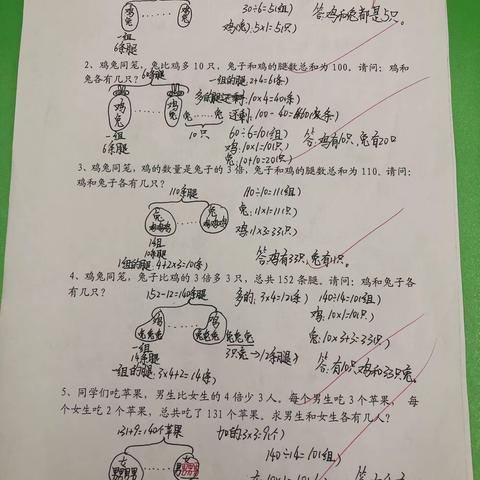 30÷6=5(组)
鸡(兔):5×1=5(只)
答:鸡和兔都是5只。
鸡
兔
鸡
兔
一组
6条腿
2、鸡兔同笼,兔比鸡多 10 只,兔子和鸡的腿数总和为 100。请问:鸡和
兔各有几只?
60条腿
一组的腿:2+4=6(条)
10×4=40(条)
还剩:100-40=60(条)
60÷6=10(组)
鸡:10×1=10(只)
兔:10+10=20(只)
答:鸡有10只,兔有20只
鸡
兔
鸡
兔
兔……兔
10只
一组
6条腿
3、鸡兔同笼,鸡的数量是兔子的 3 倍,兔子和鸡的腿数总和为 110。请问:
鸡和兔子各有几只?
110条腿
110÷10=11(组)
兔:11×1=11(只)
鸡:11×3=33(只)
兔
鸡鸡鸡
兔
鸡鸡鸡
1组
10条腿
1组的腿:4+2×3=10(条)
答:鸡有33只,兔有11只。
4、鸡兔同笼,兔子比鸡的 3 倍多 3 只,总共 152 条腿。请问:鸡和兔子各
有几只?
152-12=140条腿
多的:3×4=12(条)
140÷14=10(组)
鸡:10×1=10(只)
兔:10×3+3=33(只)
鸡
兔兔兔
鸡
兔兔兔
兔兔兔
3只兔→12条腿
一组
14条腿
一组的腿:3×4+2=14(条)
答:有10只鸡和33只兔。
5、同学们吃苹果,男生比女生的 4 倍少 3 人。每个男生吃 3 个苹果,每
个女生吃 2 个苹果,总共吃了 131 个苹果。求男生和女生各有几人?
131+9=140个苹果
加的:3×3=9(个)
140÷14=10(组)
女
男男男
女